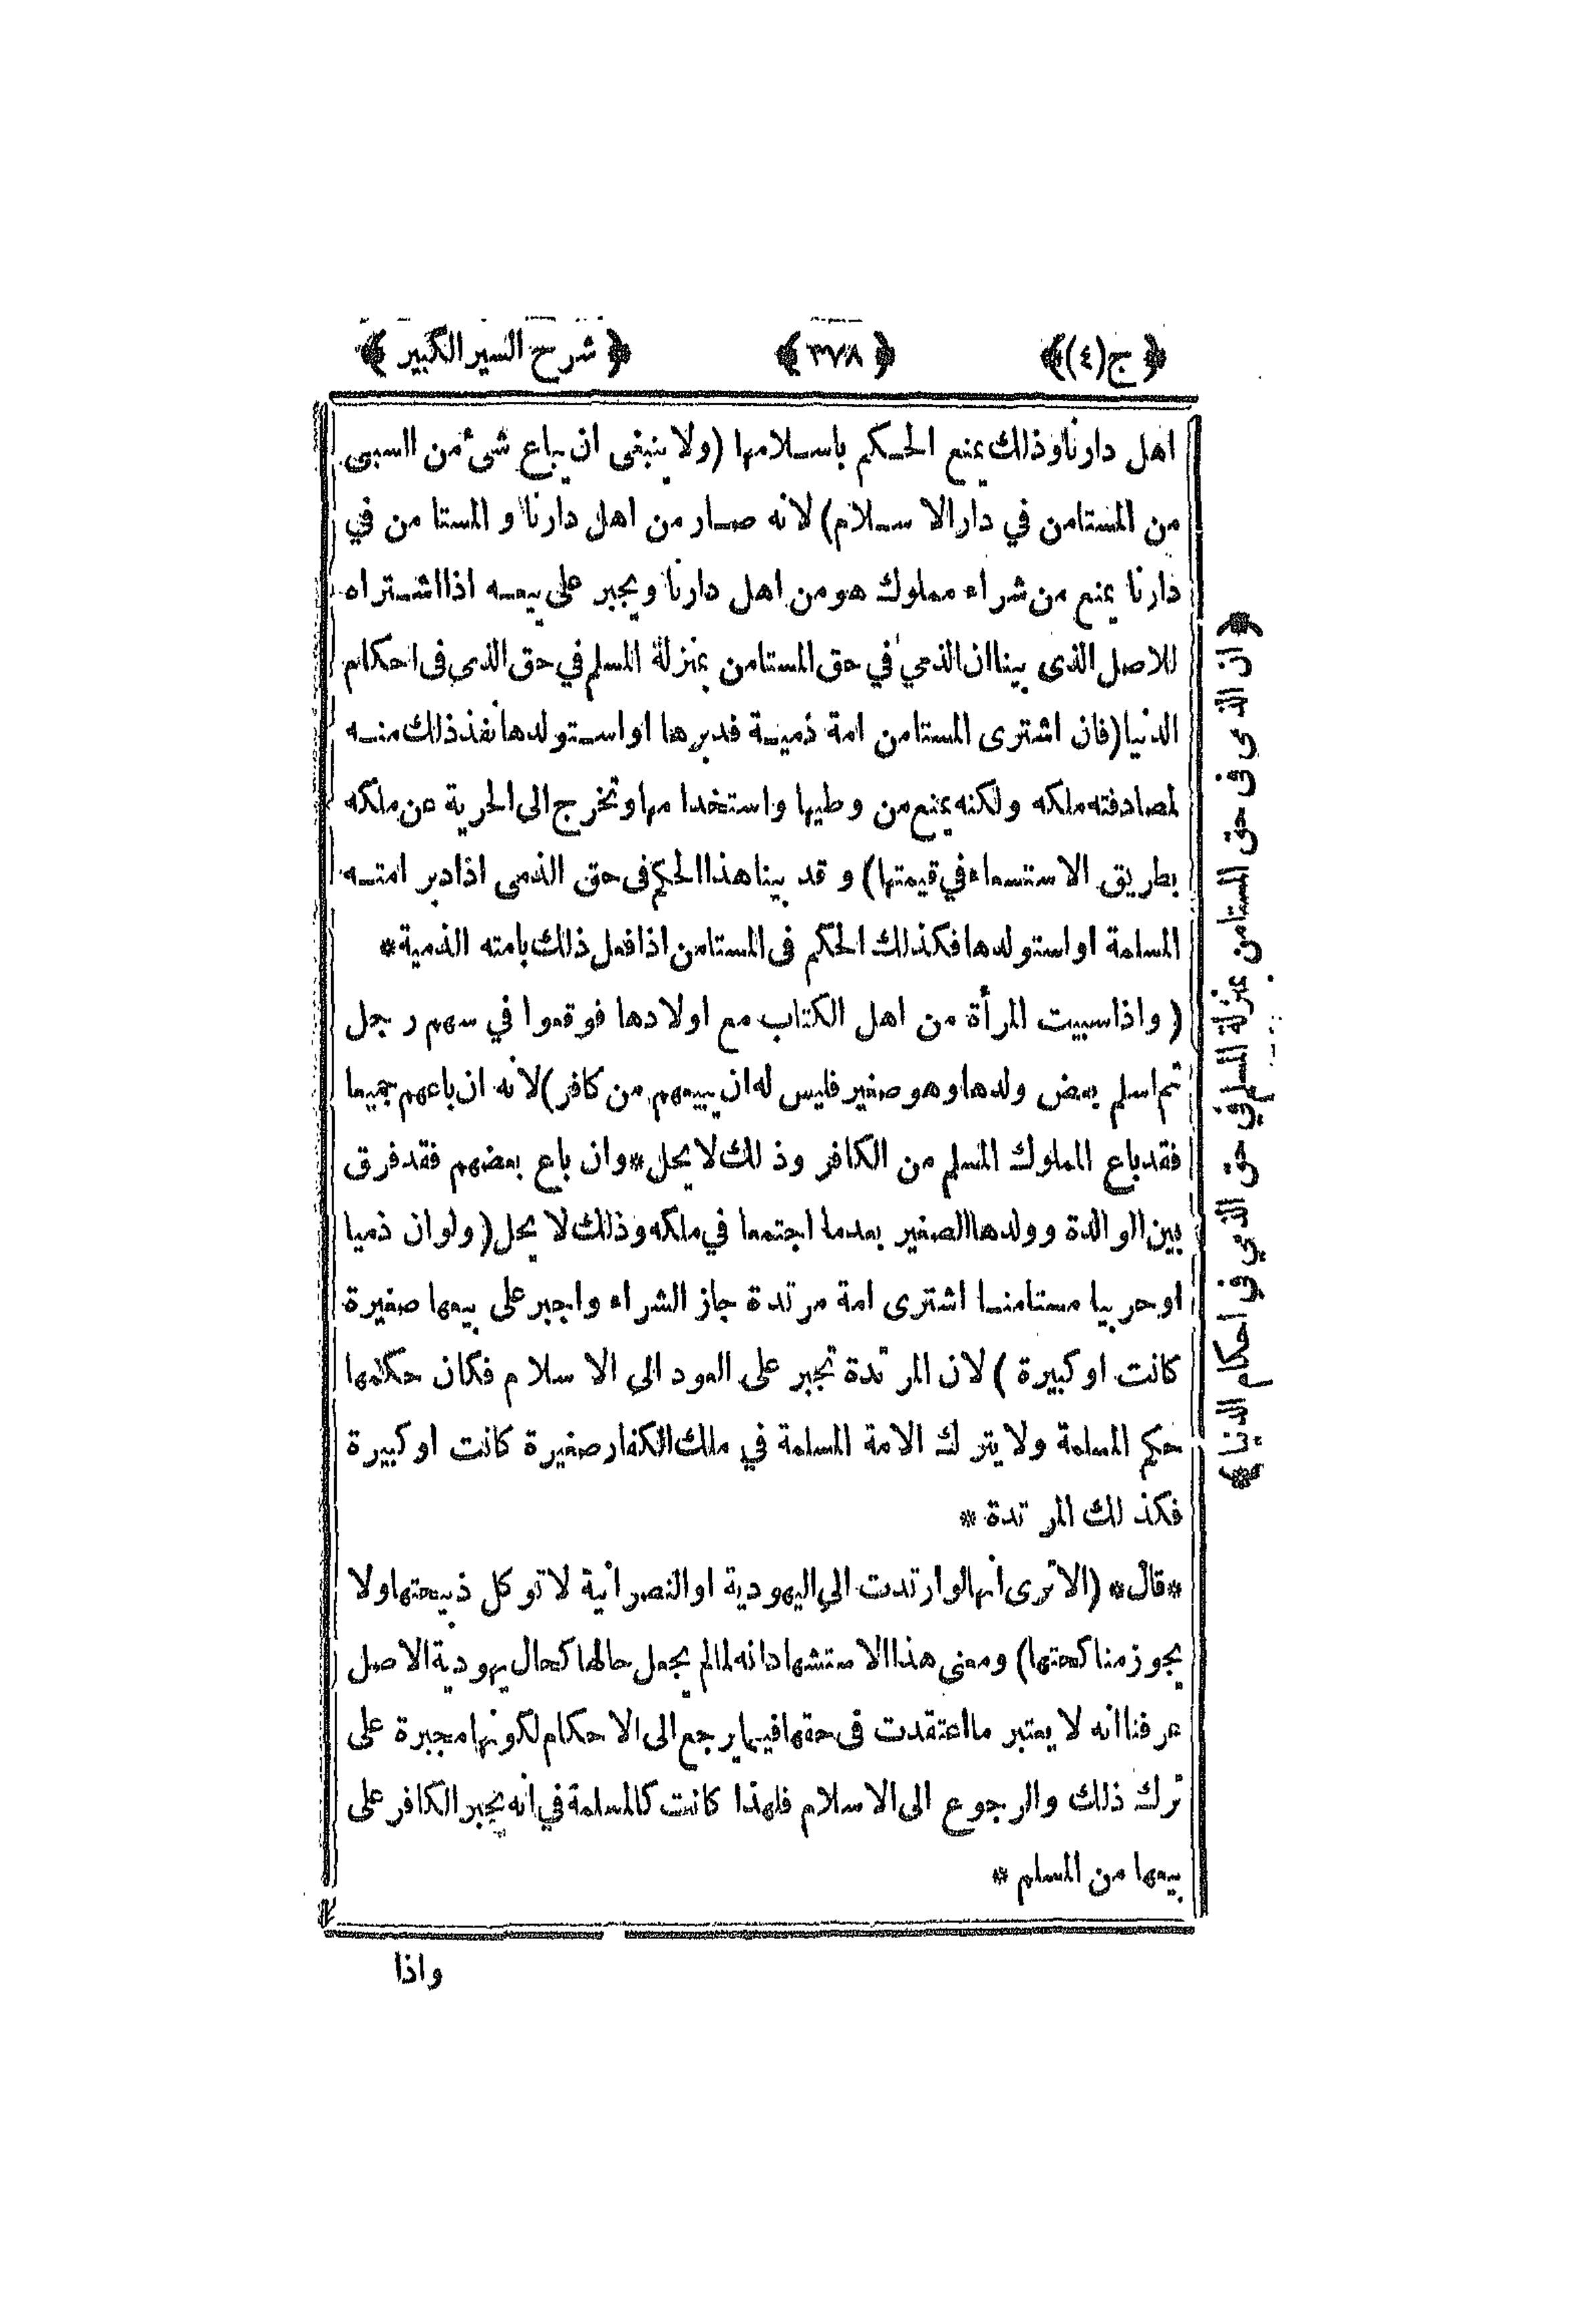 ﴿ ج(٤)﴾ ﴿ ٣٧٨ ﴾ ﴿ شرح السير الكبير ﴾
اهل دارنا وذلك يمنع الحكم باسلامها (ولا ينبغى ان يباع شىء من السبى
من المستامن في دار الاسلام) لانه صار من اهل دارنا و المستامن في
دارنا يمنع من شراء مملوك هو من اهل دارنا ويجبر على بيعه اذا اشتراه
للاصل الذى بينا ان الذمي في حق المستامن بمنزلة المسلم في حق الذمى فى احكام
الدنيا (فان اشترى المستامن امة ذمية فدبرها او استولدها نفذ ذلك منه
لمصادفته ملكه ولكنه يمنع من وطيها واستخدامها وتخرج الى الحرية عن ملكه
بطريق الاستسعاء في قيمتها) و قد بينا هذا الحكم فى حق الذمى اذا دبر امته
المسلمة او استولدها فكذلك الحكم فى المستامن اذا فعل ذلك بامته الذمية*
( واذا سبيت المرأة من اهل الكتاب مع اولادها فوقعوا في سهم رجل
ثم اسلم بعض ولدها وهو صغير فليس له ان يبيعهم من كافر) لانه ان باعهم جميعا
فقد باع المملوك المسلم من الكافر وذلك لا يحل*وان باع بعضهم فقد فرق
بين الوالدة وولدها الصغير بعدما اجتمعا في ملكه وذلك لا يحل (ولو ان ذميا
او حربيا مستامنا اشترى امة مرتدة جاز الشراء واجبر على بيعها صغيرة
كانت او كبيرة ) لان المرتدة تجبر على العود الى الاسلام فكان حكمها
حكم المسلمة ولا يترك الامة المسلمة في ملك الكفار صغيرة كانت او كبيرة
فكذلك المرتدة *
*قال* (الا ترى انها لو ارتدت الى اليهودية او النصرانية لا توكل ذبيحتها ولا
يجوز مناكحتها) ومعنى هذا الاستشهاد انه لما لم يجعل حالها كحال يهودية الاصل
عرفنا انه لا يعتبر ما اعتقدت فى حقها فيما يرجع الى الاحكام لكونها مجبرة على
ترك ذلك والرجوع الى الاسلام فلهذا كانت كالمسلمة في انه يجبر الكافر على
بيعها من المسلم *
﴿ان الذمى فى حق المستامن بمنزلة المسلم في حق الذمي في احكام الدنيا﴾
واذا